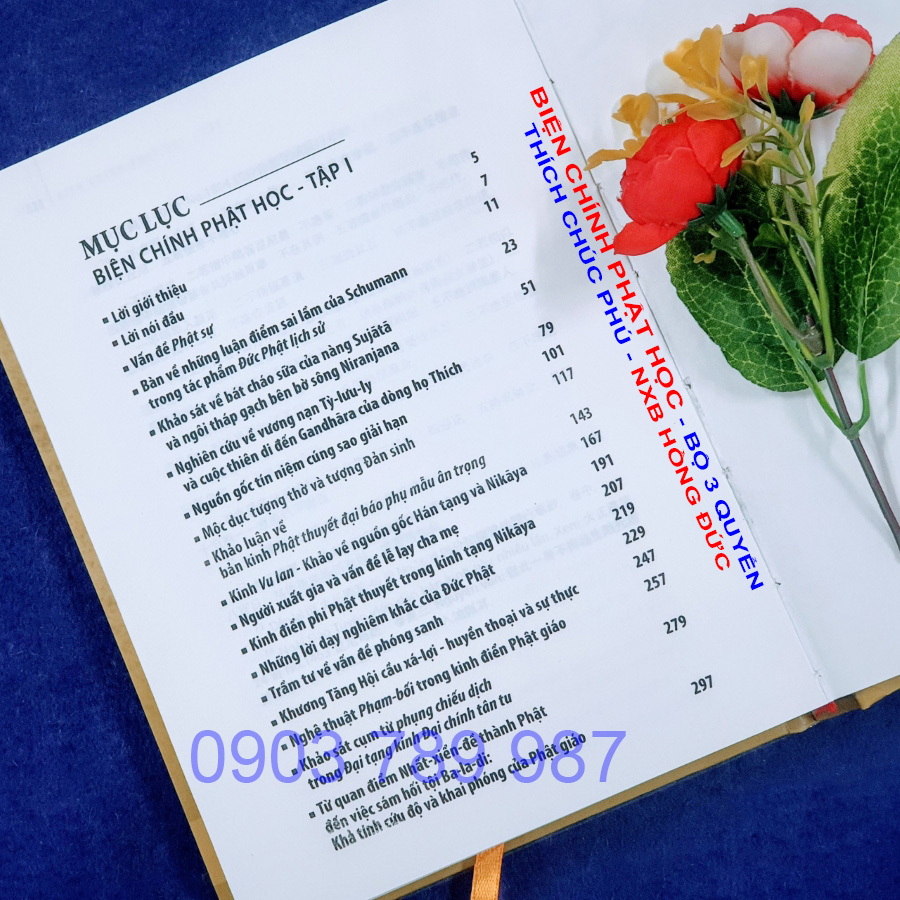 MỤC LỤC
BIỆN CHÍNH PHẬT HỌC - TẬP I
▪ Lời giới thiệu 5
▪ Lời nói đầu 7
▪ Vấn đề Phật sự 11
▪ Bàn về những luận điểm sai lầm của Schumann
trong tác phẩm Đức Phật lịch sử 23
▪ Khảo sát về bát cháo sữa của nàng Sujātā
và ngôi tháp gạch bên bờ sông Niranjana 51
▪ Nghiên cứu về vương nạn Tỳ-lưu-ly
và cuộc thiên di đến Gandhāra của dòng họ Thích 79
▪ Nguồn gốc tín niệm cúng sao giải hạn 101
▪ Mộc dục tượng thờ và tượng Đản sinh 117
▪ Khảo luận về
bản kinh Phật thuyết đại báo phụ mẫu ân trọng 143
▪ Kinh Vu lan - Khảo về nguồn gốc Hán tạng và Nikāya 167
▪ Người xuất gia và vấn đề lễ lạy cha mẹ 191
▪ Kinh điển phi Phật thuyết trong kinh tạng Nikāya 207
▪ Những lời dạy nghiêm khắc của Đức Phật 219
▪ Trầm tư về vấn đề phóng sanh 229
▪ Khương Tăng Hội cầu xá-lợi - huyền thoại và sự thực 247
▪ Nghệ thuật Phạm-bối trong kinh điển Phật giáo 257
▪ Khảo sát cụm từ phụng chiếu dịch
trong Đại tạng kinh Đại chính tân tu 279
▪ Từ quan điểm Nhất-xiển-đề thành Phật
đến việc sám hối tội Ba-la-di:
Khả tính cứu độ và khai phóng của Phật giáo 297
BIỆN CHÍNH PHẬT HỌC - BỘ 3 QUYỂN
THÍCH CHÚC PHÚ - NXB HỒNG ĐỨC
0903 789 987